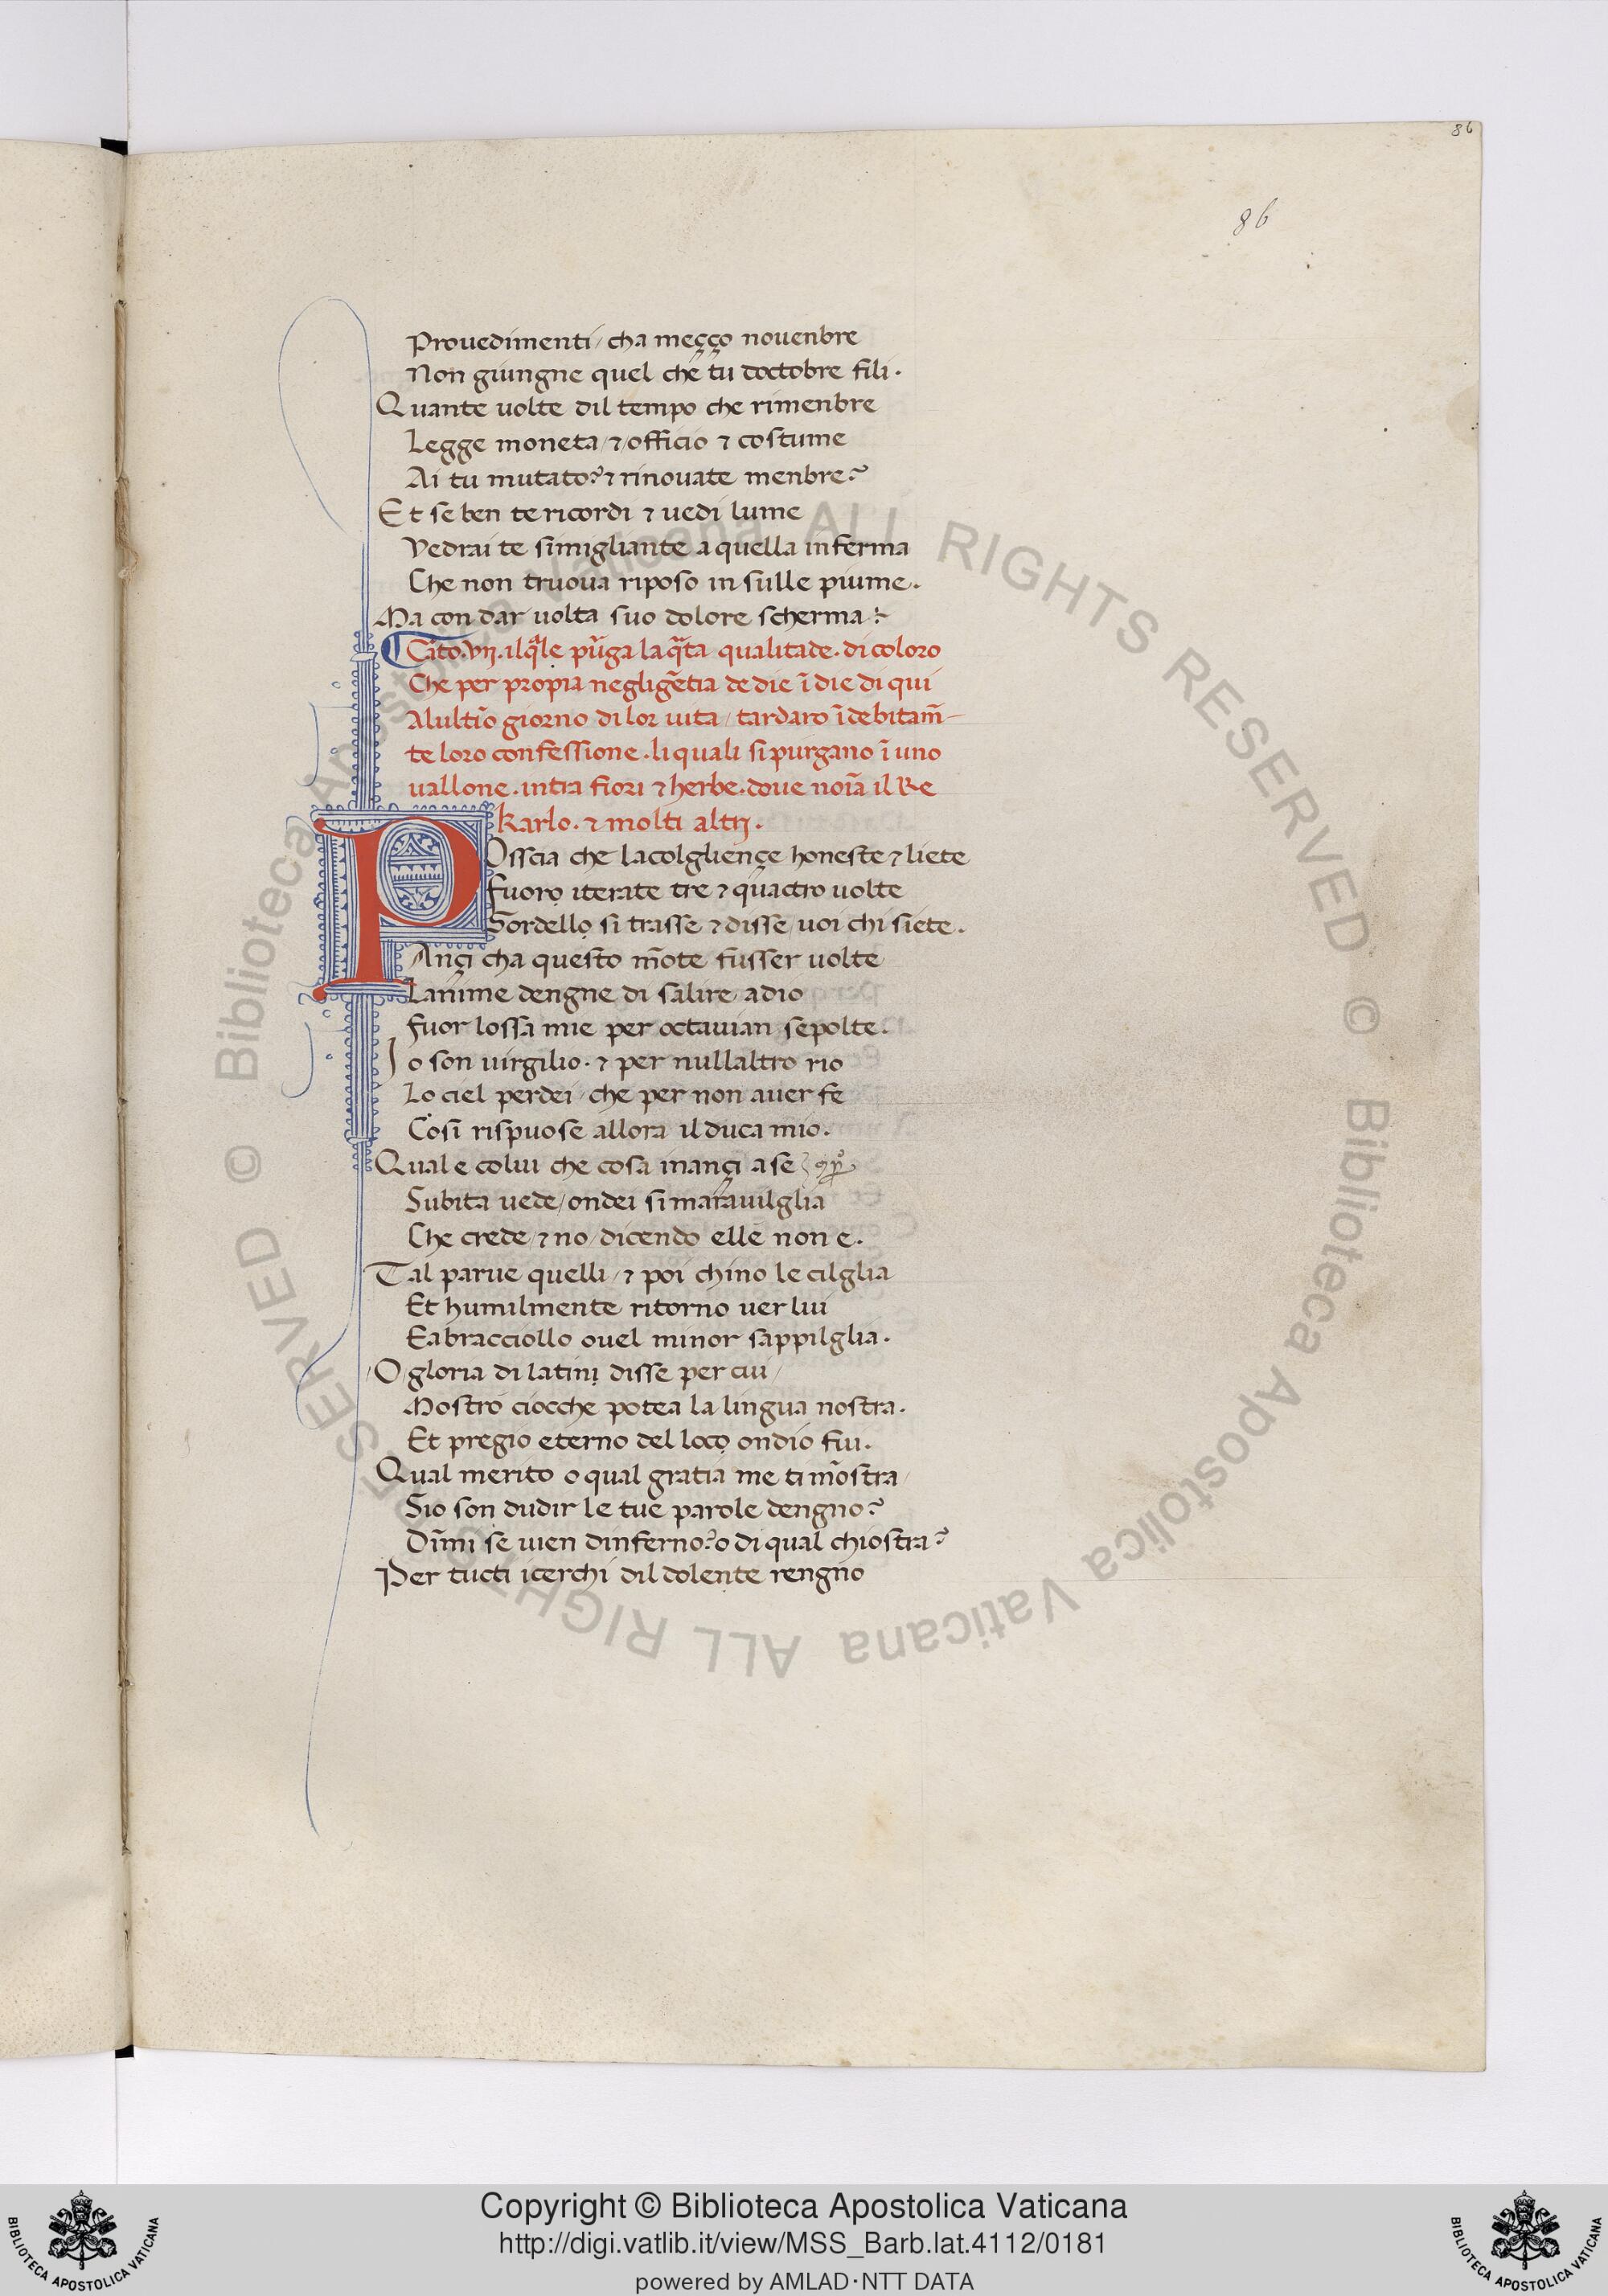 86
86
Prouedimenti / cha meçço nouenbre
Non giungne quel che tu doctobre fili .
Quante uolte dil tempo che rimenbre
Legge moneta / ⁊ officio ⁊ costume
Ai tu mutato ? ⁊ rinouate menbre ?
Et se ben te ricordi ⁊ uedi lume
Vedrai te simigliante a quella inferma
Che non truoua riposo in sulle piume .
Ma con dar uolta suo dolore scherma :~
Cãto . vij . il q̃le pũga la q̃ta qualitade . di coloro
Che per propia negligẽtia de die ĩ die di qui
Alultĩo giorno di lor uita / tardaro ĩdebitam̃-
te loro confessione . li quali si purgano ĩ uno
uallone . intra fiori ⁊ herbe . doue noĩa il Re
karlo . ⁊ molti altrj .
POsscia che lacolgliençe honeste ⁊ liete
Fuoro iterate tre ⁊ quactro uolte
Sordello si trasse ⁊ disse / uoi chi siete .
Ançi cha questo mõte fusser uolte
Lanime dengne di salire / adio
Fuor lossa mie per octauian sepolte .
Io son uirgilio . ⁊ per nullaltro rio
Lo ciel perdei / che per non auer fe
Cosi rispuose allora il duca mio .
Qual e colui che cosa inançi a se
Subita uede / ondei si marauilglia
Che crede / ⁊ no / dicendo elle non e .
Tal parue quelli / ⁊ poi chino le cilglia
Et humilmente ritorno uer lui
Eabracciollo ouel minor sappilglia .
O gloria di latini disse per cui /
Mostro ciocche potea la lingua nostra .
Et pregio eterno del loco ondio fui .
Qual merito o qual gratia me ti mostra /
Sio son dudir le tue parole dengno ?
Dimi se uien dinferno ? o di qual chiostra ?
Per tucti icerchi dil dolente rengno
© Biblioteca Apostolica Vaticana ALL RIGHTS RESERVED
© Biblioteca Apostolica Vaticana ALL RIGHTS RESERVED
BIBLIOTECA APOSTOLICA VATICANA
Copyright © Biblioteca Apostolica Vaticana
http://digi.vatlib.it/view/MSS_Barb.lat.4112/0181
powered by AMLAD·NTT DATA
BIBLIOTECA APOSTOLICA VATICANA